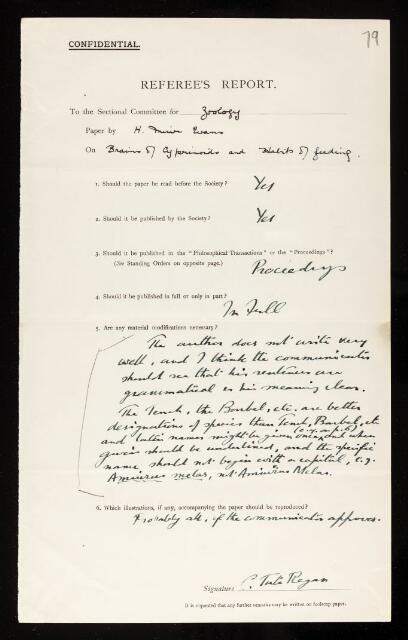 79
CONFIDENTIAL.
REFEREE'S REPORT.
To the Sectional Committee for Zoology
Paper by H. Muir Evans
On Brains of Cyprinoids and Habits of feeding.
1. Should the paper be read before the Society? Yes
2. Should it be published by the Society? Yes
3. Should it be published in the "Philosophical Transactions" or the "Proceedings"?
(See Standing Orders on opposite page.) Proceedings
4. Should it be published in full or only in part? In full
5. Are any material modifications necessary?
The author does not write very
well, and I think the communicator
should see that his sentences are
grammatical & his meaning clear.
The Tench, the Barbel, etc. are better
designations of species than Tench, Barbel, etc
(e.g. on p. 6)
and latin names might be given once, and when
given should be underlined, and the specific
name should not begin with a capital, e.g.
Amiurus melas, not Amiurus Melas.
6. Which illustrations, if any, accompanying the paper should be reproduced?
Probably all, if the communicator approves.
Signature C. Tate Regan
It is requested that any further remarks may be written on foolscap paper.